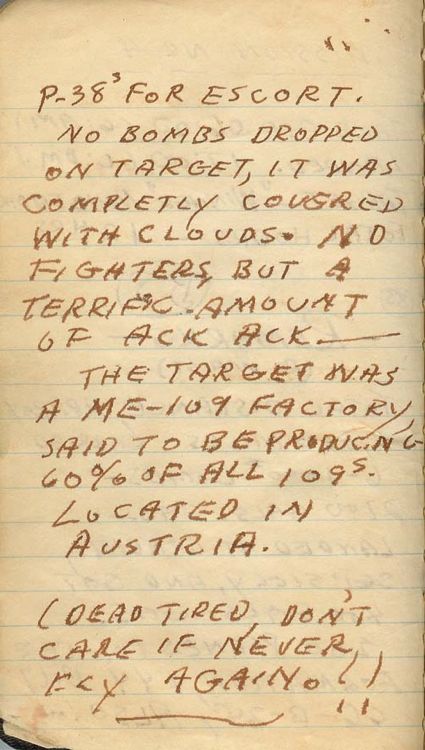 P-38s FOR ESCORT.
NO BOMBS DROPPED
ON TARGET, IT WAS
COMPLETLY COVERED
WITH CLOUDS. NO
FIGHTERS, BUT A
TERRIFIC AMOUNT
OF ACK ACK.—
THE TARGET WAS
A ME-109 FACTORY,
SAID TO BE PRODUCING
60% OF ALL 109s.
LOCATED IN
AUSTRIA.
(DEAD TIRED, DON'T
CARE IF NEVER
FLY AGAIN. !)